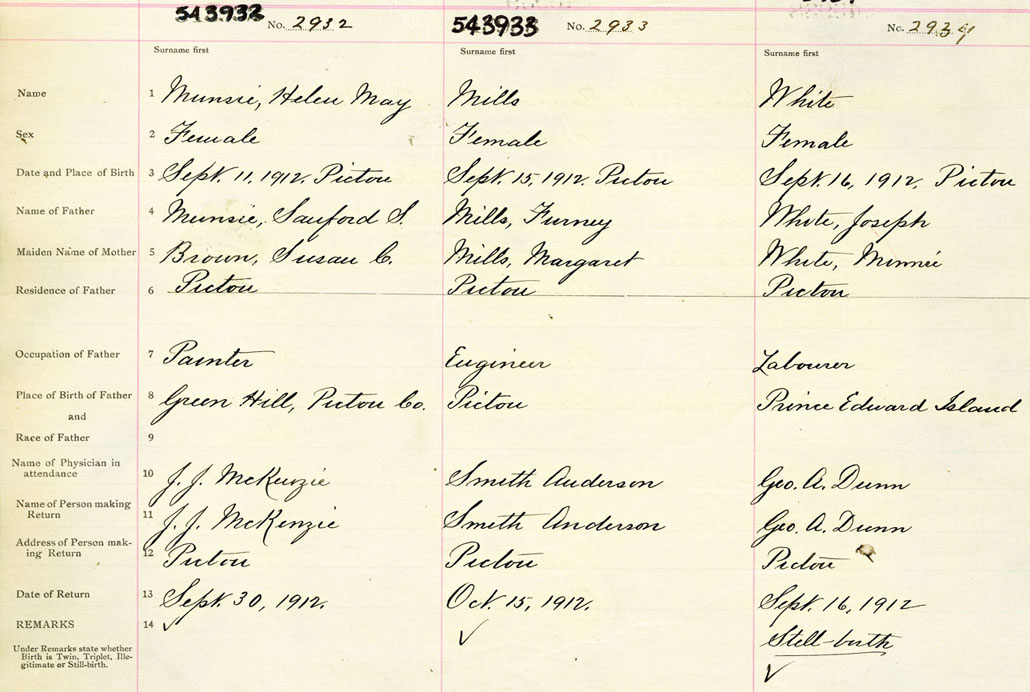 543932 No. 2932 543933 No. 2933 No. 2934
Surname first Surname first Surname first
Name 1 Munsie, Helen May Mills White
Sex 2 Female Female Female
Date and Place of Birth 3 Sept. 11, 1912. Pictou Sept. 15, 1912. Pictou Sept. 16, 1912, Pictou
Name of Father 4 Munsie, Sanford S. Mills, Furney White, Joseph
Maiden Name of Mother 5 Brown, Susan C. Mills, Margaret White, Minnie
Residence of Father 6 Pictou Pictou Pictou
Occupation of Father 7 Painter Engineer Labourer
Place of Birth of Father 8 Green Hill, Pictou Co. Pictou Prince Edward Island
and
Race of Father 9
Name of Physician in
attendance 10 J. J. McKenzie Smith Anderson Geo. A. Dunn
Name of Person making
Return 11 J. J. McKenzie Smith Anderson Geo. A. Dunn
Address of Person mak-
ing Return 12 Pictou Pictou Pictou
Date of Return 13 Sept. 30, 1912. Oct. 15, 1912. Sept. 16, 1912
REMARKS 14 ✓ ✓ Still-birth
Under Remarks state whether
Birth is Twin, Triplet, Ille-
gitimate or Still-birth.
✓